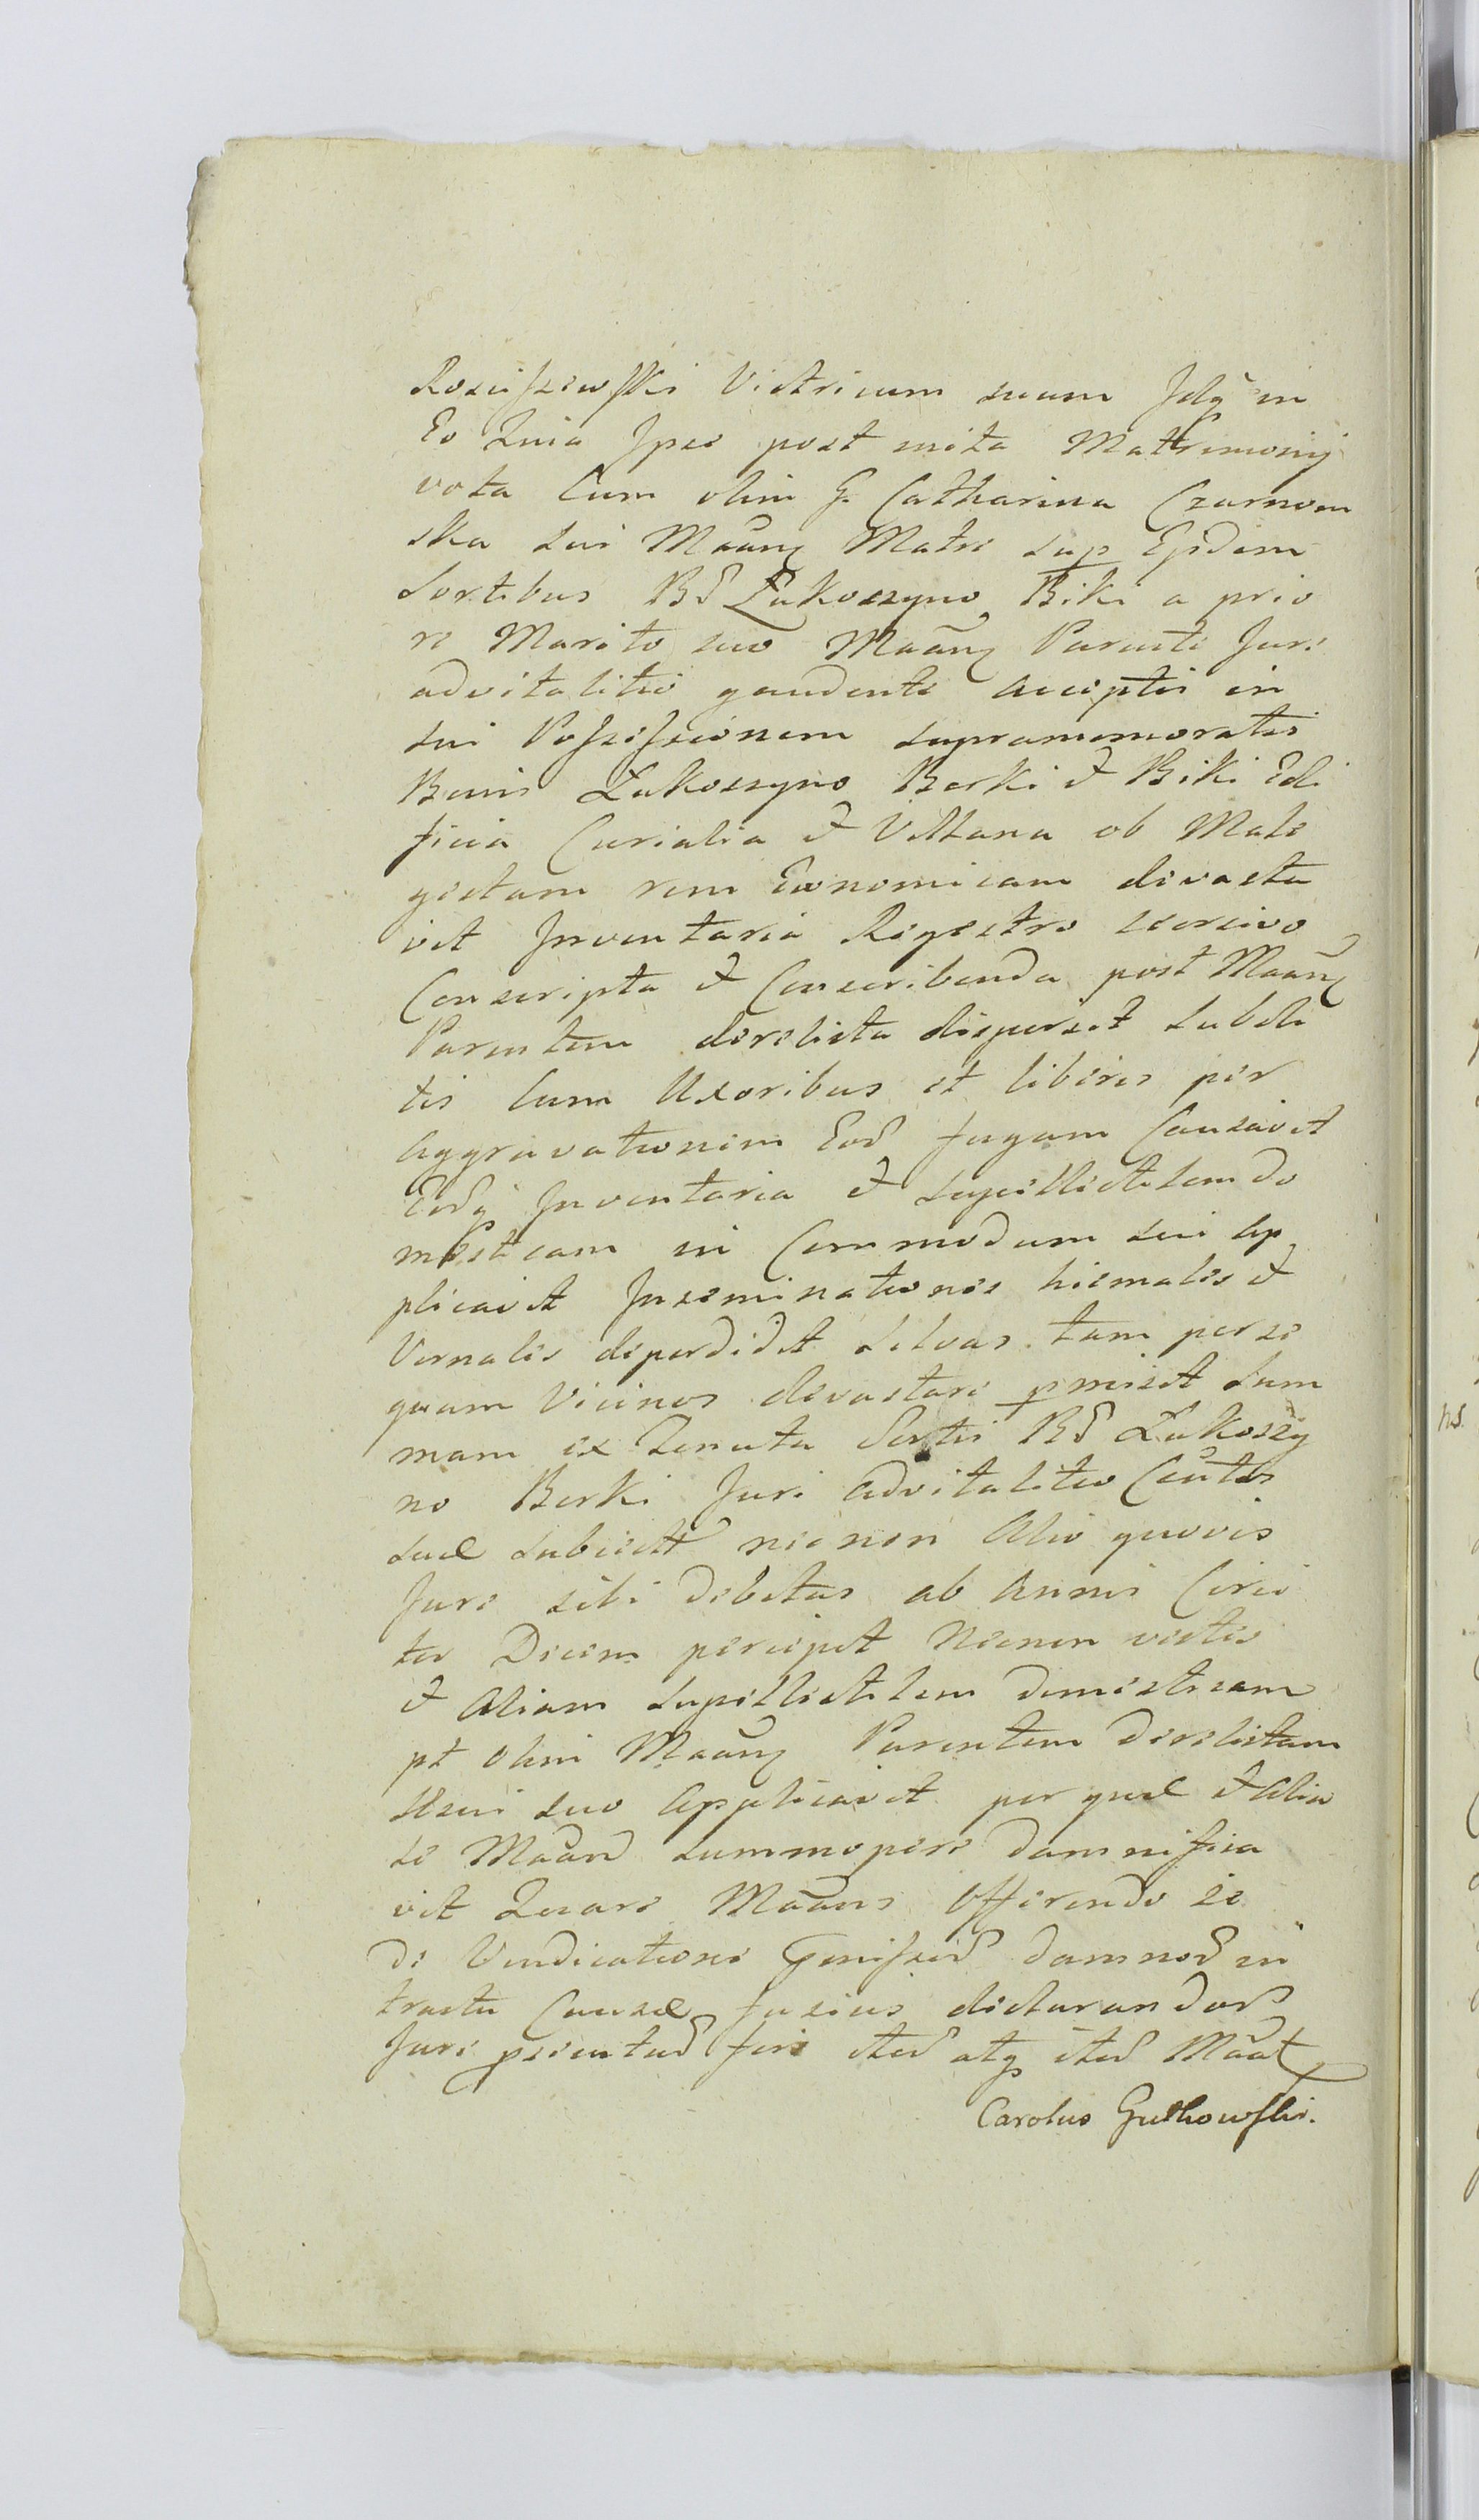 Rosciszewski Victricum suum Idq̃ in
Eo Quia Ipse post inita Matrimonij
vota Cum olim G. Catharina Czarnom
ska sui Maãnẽ Matre sup Ejsdem
Sortibus BB Łukoszyno Biki a prio
re Marito suo Maãnẽ Parente Jure
advitalitio gaudente acceptis in
sui Possessionem supramemoratis
Bonis Łukoszyno Borki et Biki Edi
ficia Curialia et Villana ob Male
gestam rem Economicam devasta
vit Inventaria Regestro seorsivo
Conscripta et Conscribenda post Maãnẽ
Parentem derelicta dispersit Subdi
tis Cum Uxoribus et liberis per
Aggravationem Eod fugam Causavit
Eodq̃ Inventaria et supellectilem do
mesticam in Commodum sui ap
plicavit Inseminationes hiemales et
Vernales deperdidit Silvas tam per se
quam Vicinos devastare pmisit Sum
mam ex Tenuta Sortis BB Łukoszy
no Borki Juri advitalitio Cõntõs
suæ subiectæ nec non Alio quovis
Jure sibi debitas ab Annis Circi
ter Decem percepit Necnon vestes
et Aliam supellectilem domesticam
pt olim Maãnẽ Parentem derelictam
Usui suo Applicavit per quæ et Alia
se Maãnd summopere damnifica
vit Quare Maãns Offerendo se
de Vindicatione damnod in
tractu Causæ fusius declarandod
Jure fieri ited atq̃ ited Mãat
Carolus Gutkowski.